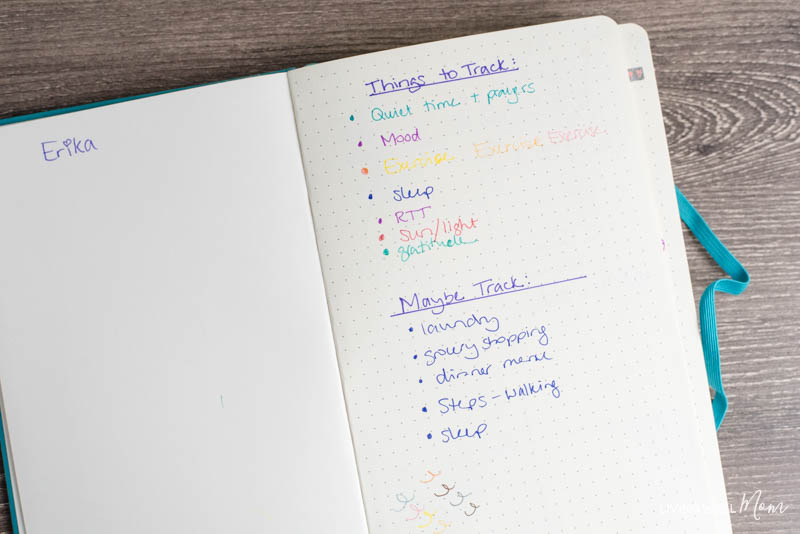 Erika
Things to Track:
• Quiet time + prayers
• Mood
• Exercise Exercise Exercise
• sleep
• RTT
• sun/light
• gratitude
Maybe Track:
• laundry
• grocery shopping
• dinner menu
• Steps - walking
• sleep
Mom